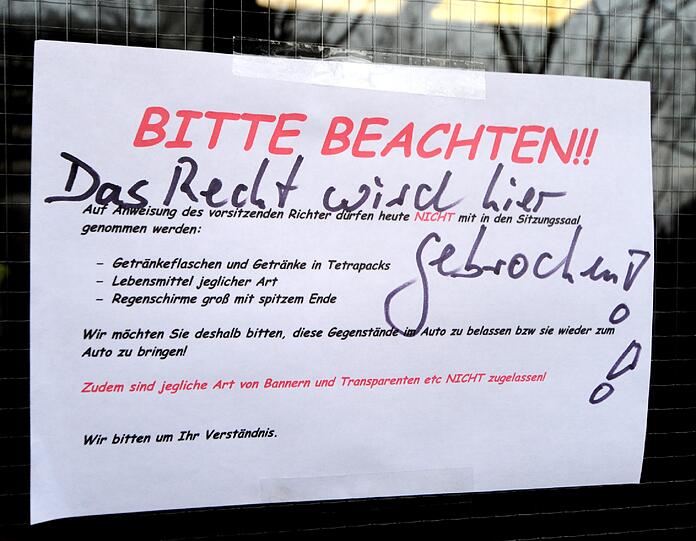 BITTE BEACHTEN!!
Das Recht wird hier
Auf Anweisung des vorsitzenden Richter dürfen heute NICHT mit in den Sitzungssaal
genommen werden:
gebrochen!
– Getränkeflaschen und Getränke in Tetrapacks
– Lebensmittel jeglicher Art
– Regenschirme groß mit spitzem Ende
Wir möchten Sie deshalb bitten, diese Gegenstände im Auto zu belassen bzw sie wieder zum
Auto zu bringen!
!
Zudem sind jegliche Art von Bannern und Transparenten etc NICHT zugelassen!
Wir bitten um Ihr Verständnis.